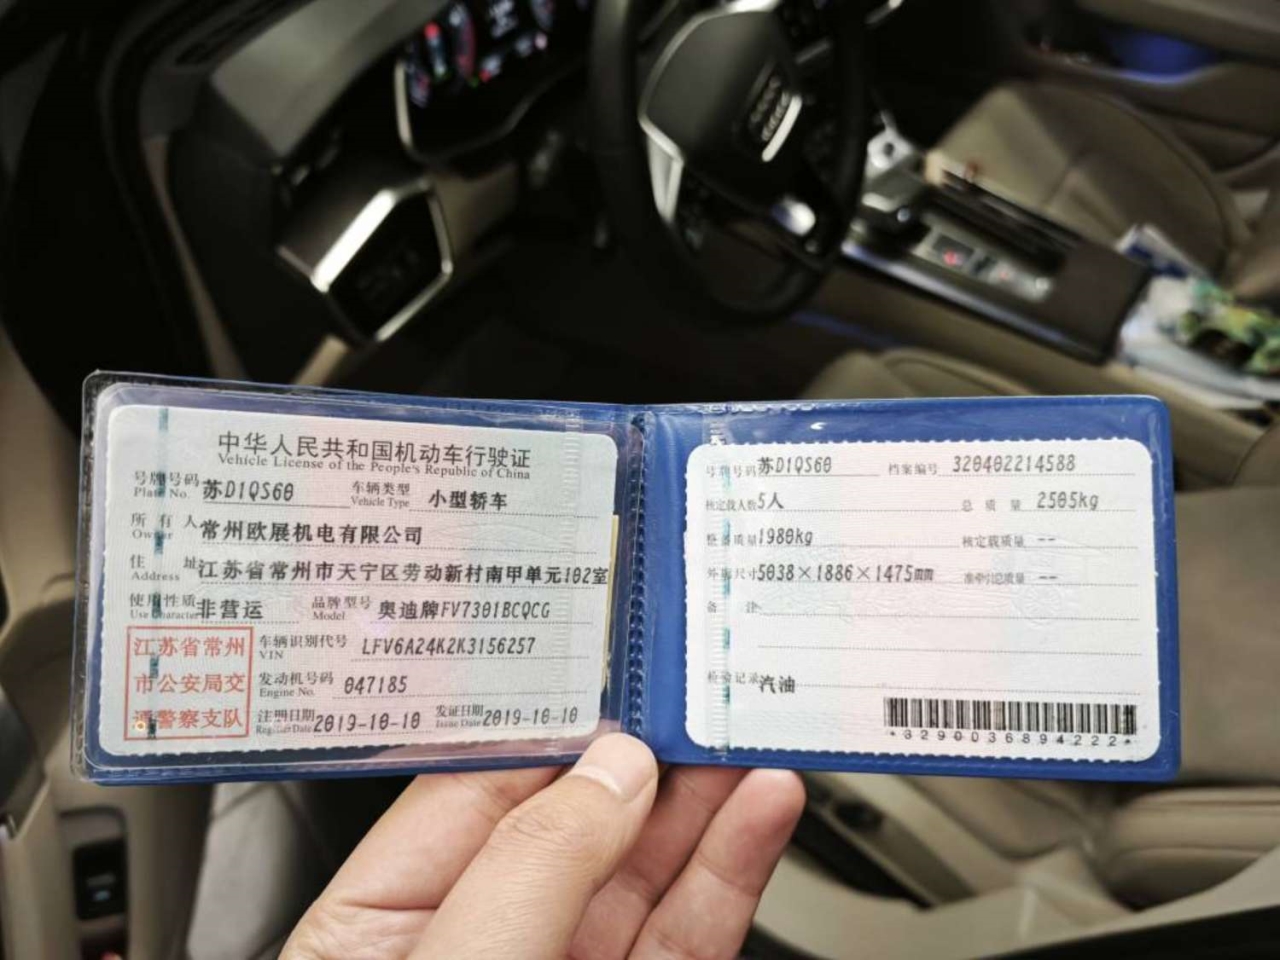 中华人民共和国机动车行驶证
Vehicle License of the People's Republic of China
号牌号码 苏D1QS60 车辆类型 小型轿车
Plate No. Vehicle Type
所有人 常州欧展机电有限公司
Owner
住址 江苏省常州市天宁区劳动新村南甲单元102室
Address
使用性质 非营运 品牌型号 奥迪牌FV7301BCQCG
Use Character Model
江苏省常州
市公安局交
通警察支队
车辆识别代号 LFV6A24K2K3156257
VIN
发动机号码 047185
Engine No.
注册日期 2019-10-10 发证日期 2019-10-10
Register Date Issue Date
号牌号码 苏D1QS60 档案编号 320402214588
核定载人数 5人 总质量 2505kg
整备质量 1980kg 核定载质量 --
外廓尺寸 5038×1886×1475mm 准牵引总质量 --
备注
检验记录 汽油
*3290036894222*